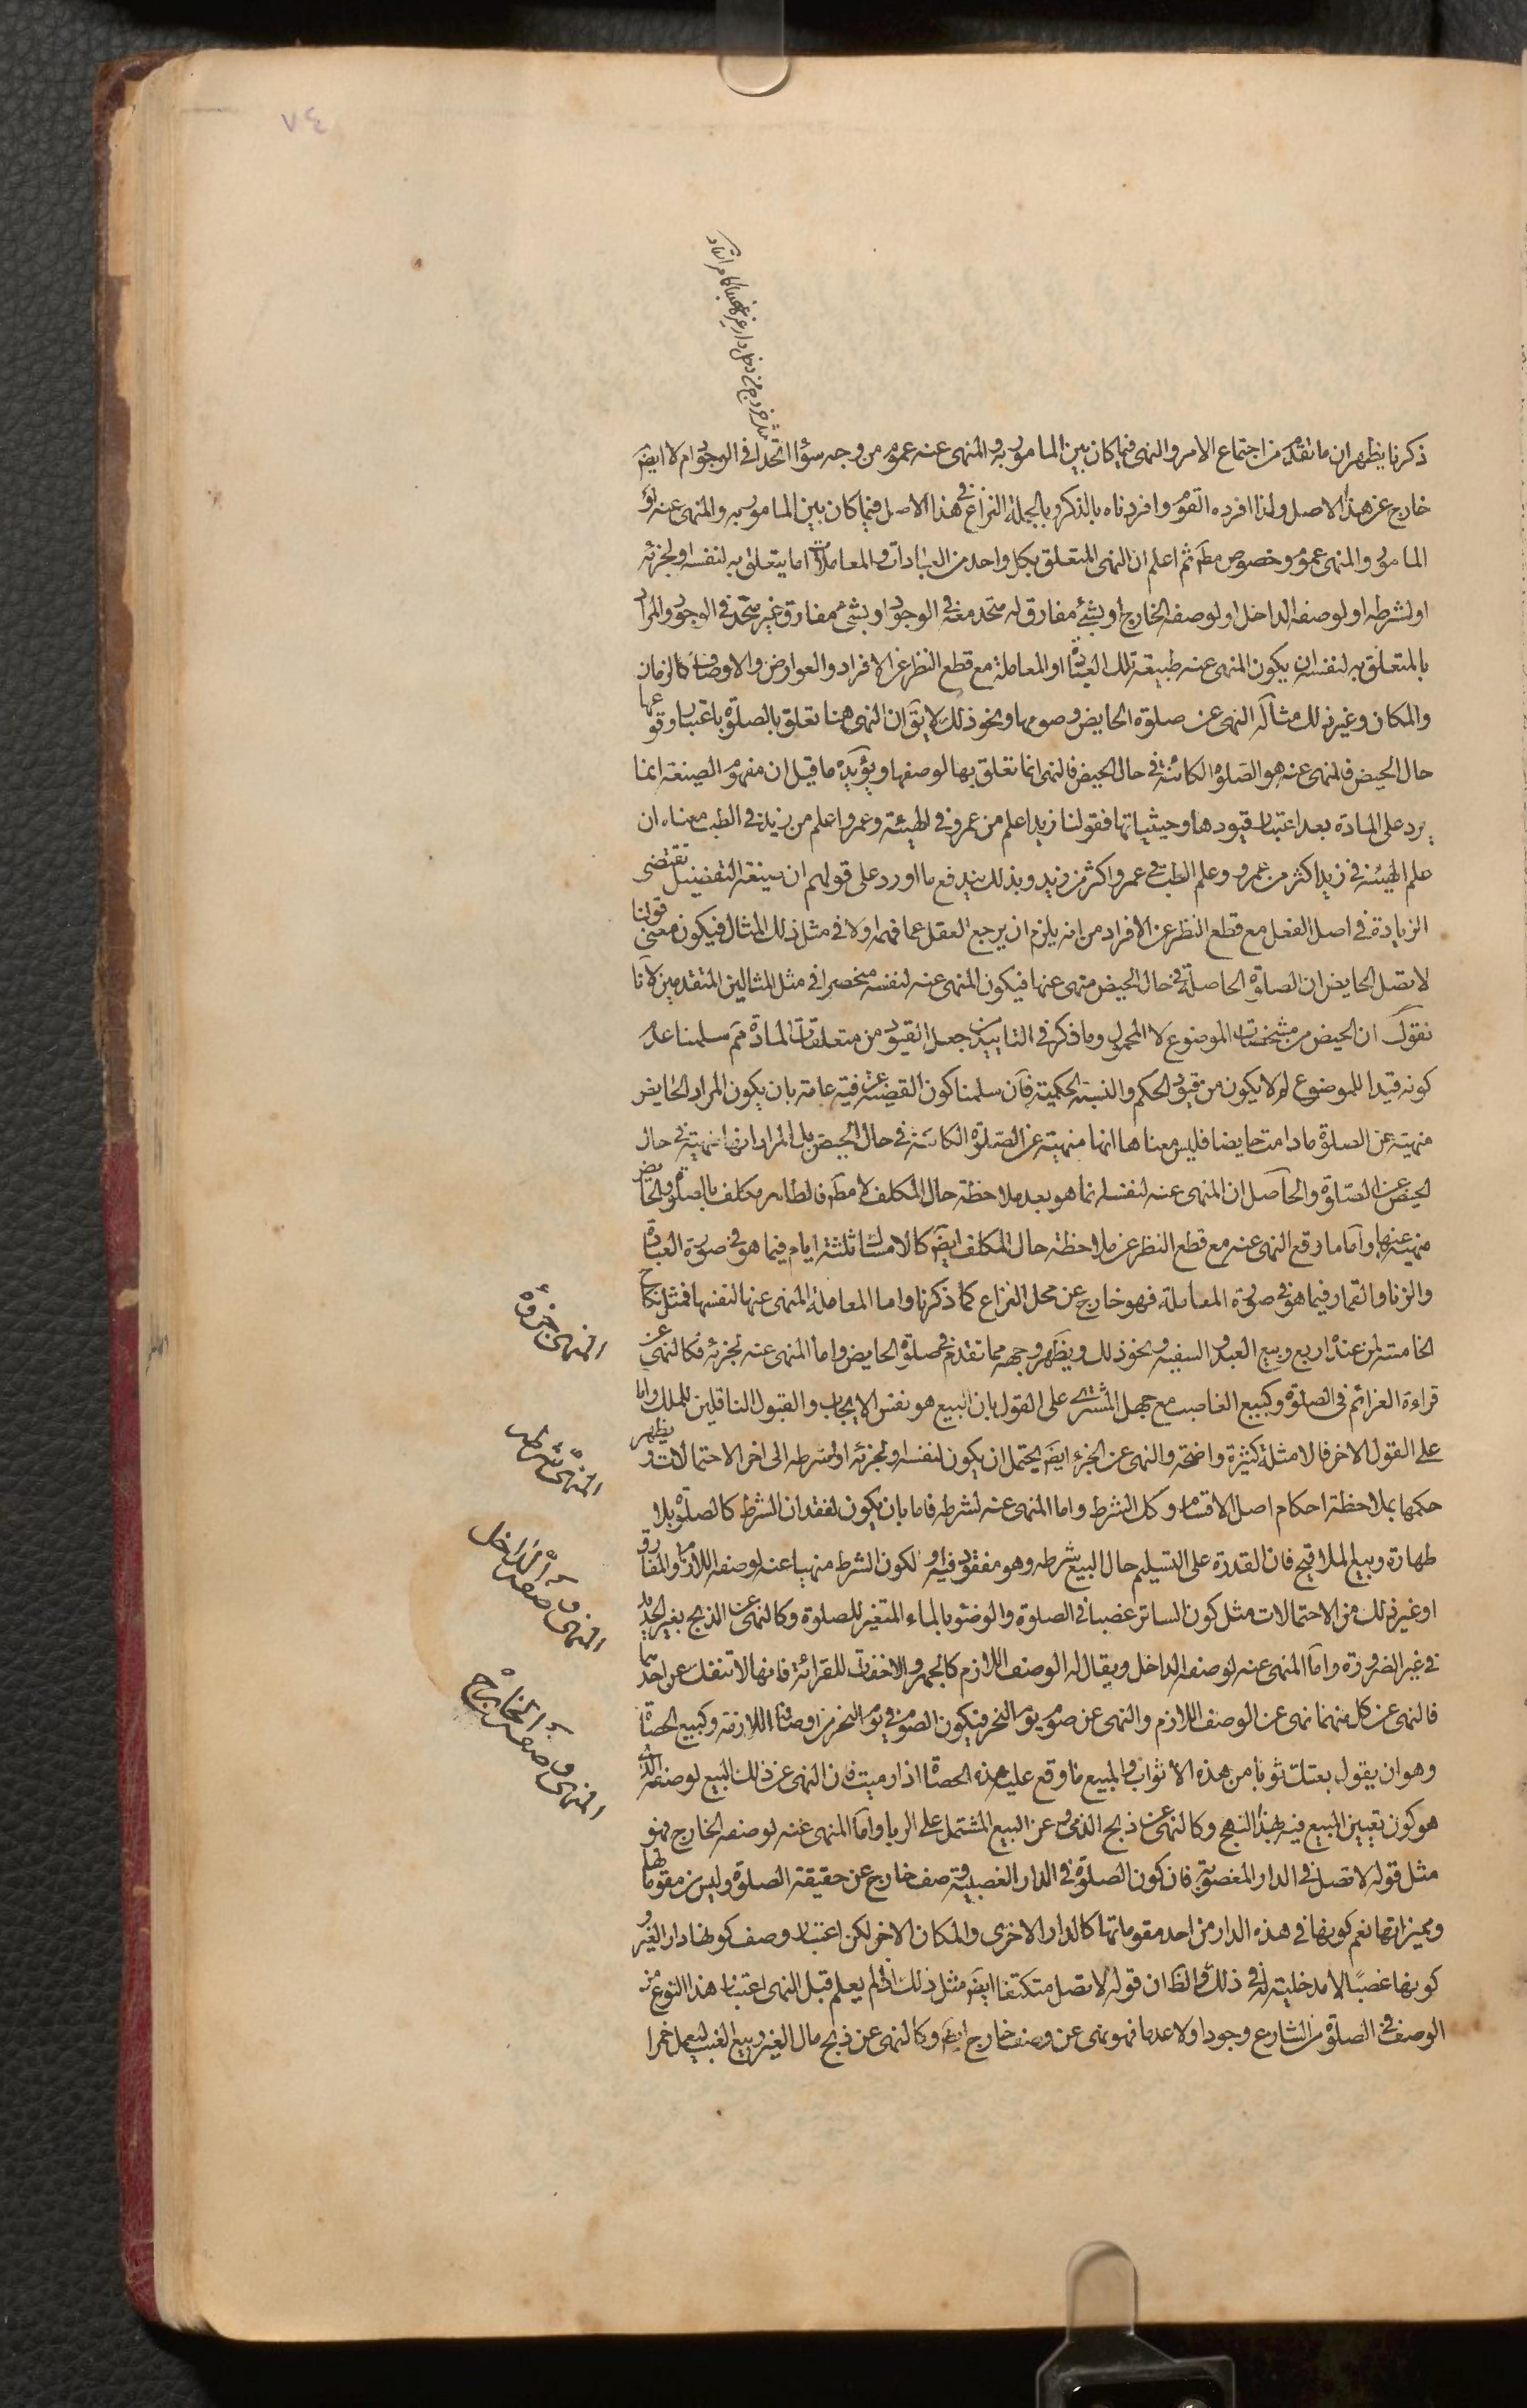 ٧٤
ذكرنا يظهر ان ما تقدم من اجتماع الامر والنهى فيما كان بين المامور به والمنهى عنه عموم من وجه سواء اتحدا فى الوجود ام لا ايضَ
خارج عن هذا الاصل ولذا افرده القوم وافردناه بالذكر وبالجملة النزاع فى هذا الاصل فيما كان بين المامور به والمنهى عنه او
المامور والمنهى عموم وخصوص مطَم ثم اعلم ان النهى المتعلق بكل واحد من العبادات والمعاملات اما يتعلق به لنفسه او لجزئه
او لشرطه او لوصفه الداخل او لوصفه الخارج او بشئ مفارق له متحد معه فى الوجود او بشئ مفارق غير متحد فى الوجود والمراد
بالمتعلق به لنفسه ان يكون المنهى عنه طبيعة تلك العبادة او المعاملة مع قطع النظر عن الافراد والعوارض والاوصاف كالزمان
والمكان وغير ذلك مثاله النهى عن صلوة الحايض وصومها ونحو ذلك لا يقَ ان النهى هنا تعلق بالصلوة باعتبار وقوعها
حال الحيض فالمنهى عنه هو الصلوة الكائنة فى حال الحيض فالنهى انما تعلق بها لوصفها ويؤيده ما قيل ان مفهوم الصيغة انما
يرد على المادة بعد اعتبار قيودها وحيثياتها فقولنا زيد اعلم من عمرو فى الهيئة وعمرو اعلم من زيد فى الطب معناه ان
علم الهيئة فى زيد اكثر من عمرو وعلم الطب فى عمرو اكثر من زيد وبذلك يندفع ما اورد على قولهم ان صيغة التفضيل تقتضى
الزيادة فى اصل الفعل مع قطع النظر عن الافراد من انه يلزم ان يرجع العقل عما فهمه اولا فى مثل ذلك المثال فيكون معنى قولنا
لا تصل الحايض ان الصلوة الحاصلة فى حال الحيض منهى عنها فيكون المنهى عنه لنفسه منحصرا فى مثل المثالين المتقدمين لانا
نقول ان الحيض من مشخصات الموضوع لا المحمول وما ذكر فى التاييد من جعل القيود من متعلقات المادة مَم سلمنا عدم
كونه قيدا للموضوع لم لا يكون من قيود الحكم والنسبة الحكمية فان سلمنا كون القضية عرفية عامة بان يكون المراد الحايض
منهية عن الصلوة ما دامت حايضا فليس معناها انها منهية عن الصلوة الكائنة فى حال الحيض بل المراد انها منهية فى حال
الحيض عن الصلوة والحاصل ان المنهى عنه لنفسه انما هو بعد ملاحظة حال المكلف لا مطَم فالطاهر مكلف بالصلوة والحايض
منهية عنها واما ما وقع النهى عنه مع قطع النظر عن ملاحظة حال المكلف ايضَ كالامساك ثلثة ايام فيما هو فى صورة العبادة
والزنا والقمار فيما هو فى صورة المعاملة فهو خارج عن محل النزاع كما ذكرنا واما المعاملة المنهى عنها لنفسها فمثل نكاح
الخامسة لمن عنده اربع وبيع العبد والسفيه ونحو ذلك ويظهر وجهه مما تقدم فى صلوة الحايض واما المنهى عنه لجزئه فكالنهى عن
قراءة العزائم فى الصلوة وكبيع الغاصب مع جهل المشترى على القول بان البيع هو نفس الايجاب والقبول الناقلين للملك واما
على القول الاخر فالامثلة كثيرة واضحة والنهى عن الجزء ايضَ يحتمل ان يكون لنفسه او لجزئه او لشرطه الى اخر الاحتمالات ويظهر
حكمها بملاحظة احكام اصل الاقسام وكل الشرط واما المنهى عنه لشرطه فاما بان يكون لفقدان الشرط كالصلوة بلا
طهارة وبيع الملاقيح فان القدرة على التسليم حال البيع شرطه وهو مفقود فيه او لكون الشرط منهيا عنه لوصفه اللازم او المفارق
او غير ذلك من الاحتمالات مثل كون الساتر غصبا فى الصلوة والوضوء بالماء المتغير للصلوة وكالنهى عن الذبح بغير الحديد
فى غير الضرورة واما المنهى عنه لوصفه الداخل ويقال له الوصف اللازم كالجهر والاخفات للقرائة فانها لا تنفك عن احدهما
فالنهى عن كل منهما نهى عن الوصف اللازم والنهى عن صوم يوم النحر فيكون الصوم فى يوم النحر من اوصافه اللازمة وكبيع الحصاة
وهو ان يقول بعتك ثوبا من هذه الاثواب والمبيع ما وقع عليه هذه الحصاة اذا رميت فان النهى عن ذلك البيع لوصفه الذى
هو كون تعيين المبيع فيه بهذا النهج وكالنهى عن ذبح الذمى وعن البيع المشتمل على الربا واما المنهى عنه لوصفه الخارج فهو
مثل قوله لا تصل فى الدار المغصوبة فان كون الصلوة فى الدار الغصبية وصف خارج عن حقيقة الصلوة وليس من مقوماتها
ومميزاتها نعم كونها فى هذه الدار من احد مقوماتها كالدار الاخرى والمكان الاخر لكن اعتبار وصف كونها دار الغير و
كونها غصبًا لا مدخلية له فى ذلك والظَ ان قوله لا تصل متكتفا ايضَ مثل ذلك اذ لم يعلم قبل النهى اعتبار هذا النوع من
الوصف فى الصلوة من الشارع وجودا ولا عدما فهو نهى عن وصف خارج ايضَ وكالنهى عن ذبح مال الغير وبيع العنب ليعمل خمرا
المنهى عنه لجزئه
المنهى عنه لشرطه
المنهى عنه لوصفه الداخل
المنهى عنه لوصفه الخارج